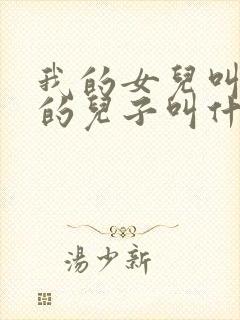 我的女兒叫
的兒子叫什
湯少新